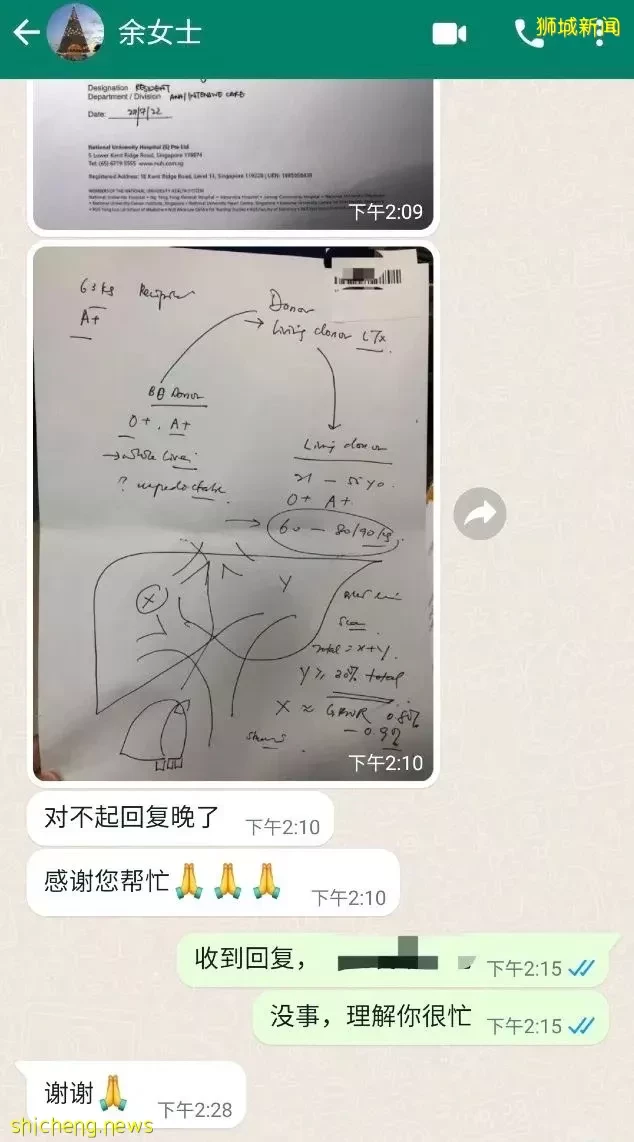 余女士
狮城新闻
Designation RESIDENT
Department / Division ANA/INTENSIVE CARE
Date:
National University Hospital (S) Pte Ltd
5 Lower Kent Ridge Road, Singapore 119074
MEMBER OF THE NATIONAL UNIVERSITY HEALTH SYSTEM
下午2:09
63 kg Recipient
A+
Donor
→ Living donor LTx
BD Donor
O+, A+
→ whole liver
Living donor
21 - 55 yo.
O+ A+
→ 60 - 80/90 kg
X
Y
Total = X+Y
Y ≥ 30% total
X ≈ GRWR 0.8%
- 0.9%
下午2:10
对不起回复晚了 下午2:10
感谢您帮忙🙏🙏🙏 下午2:10
收到回复， 下午2:15
没事，理解你很忙 下午2:15
谢谢🙏 下午2:28
shicheng.news